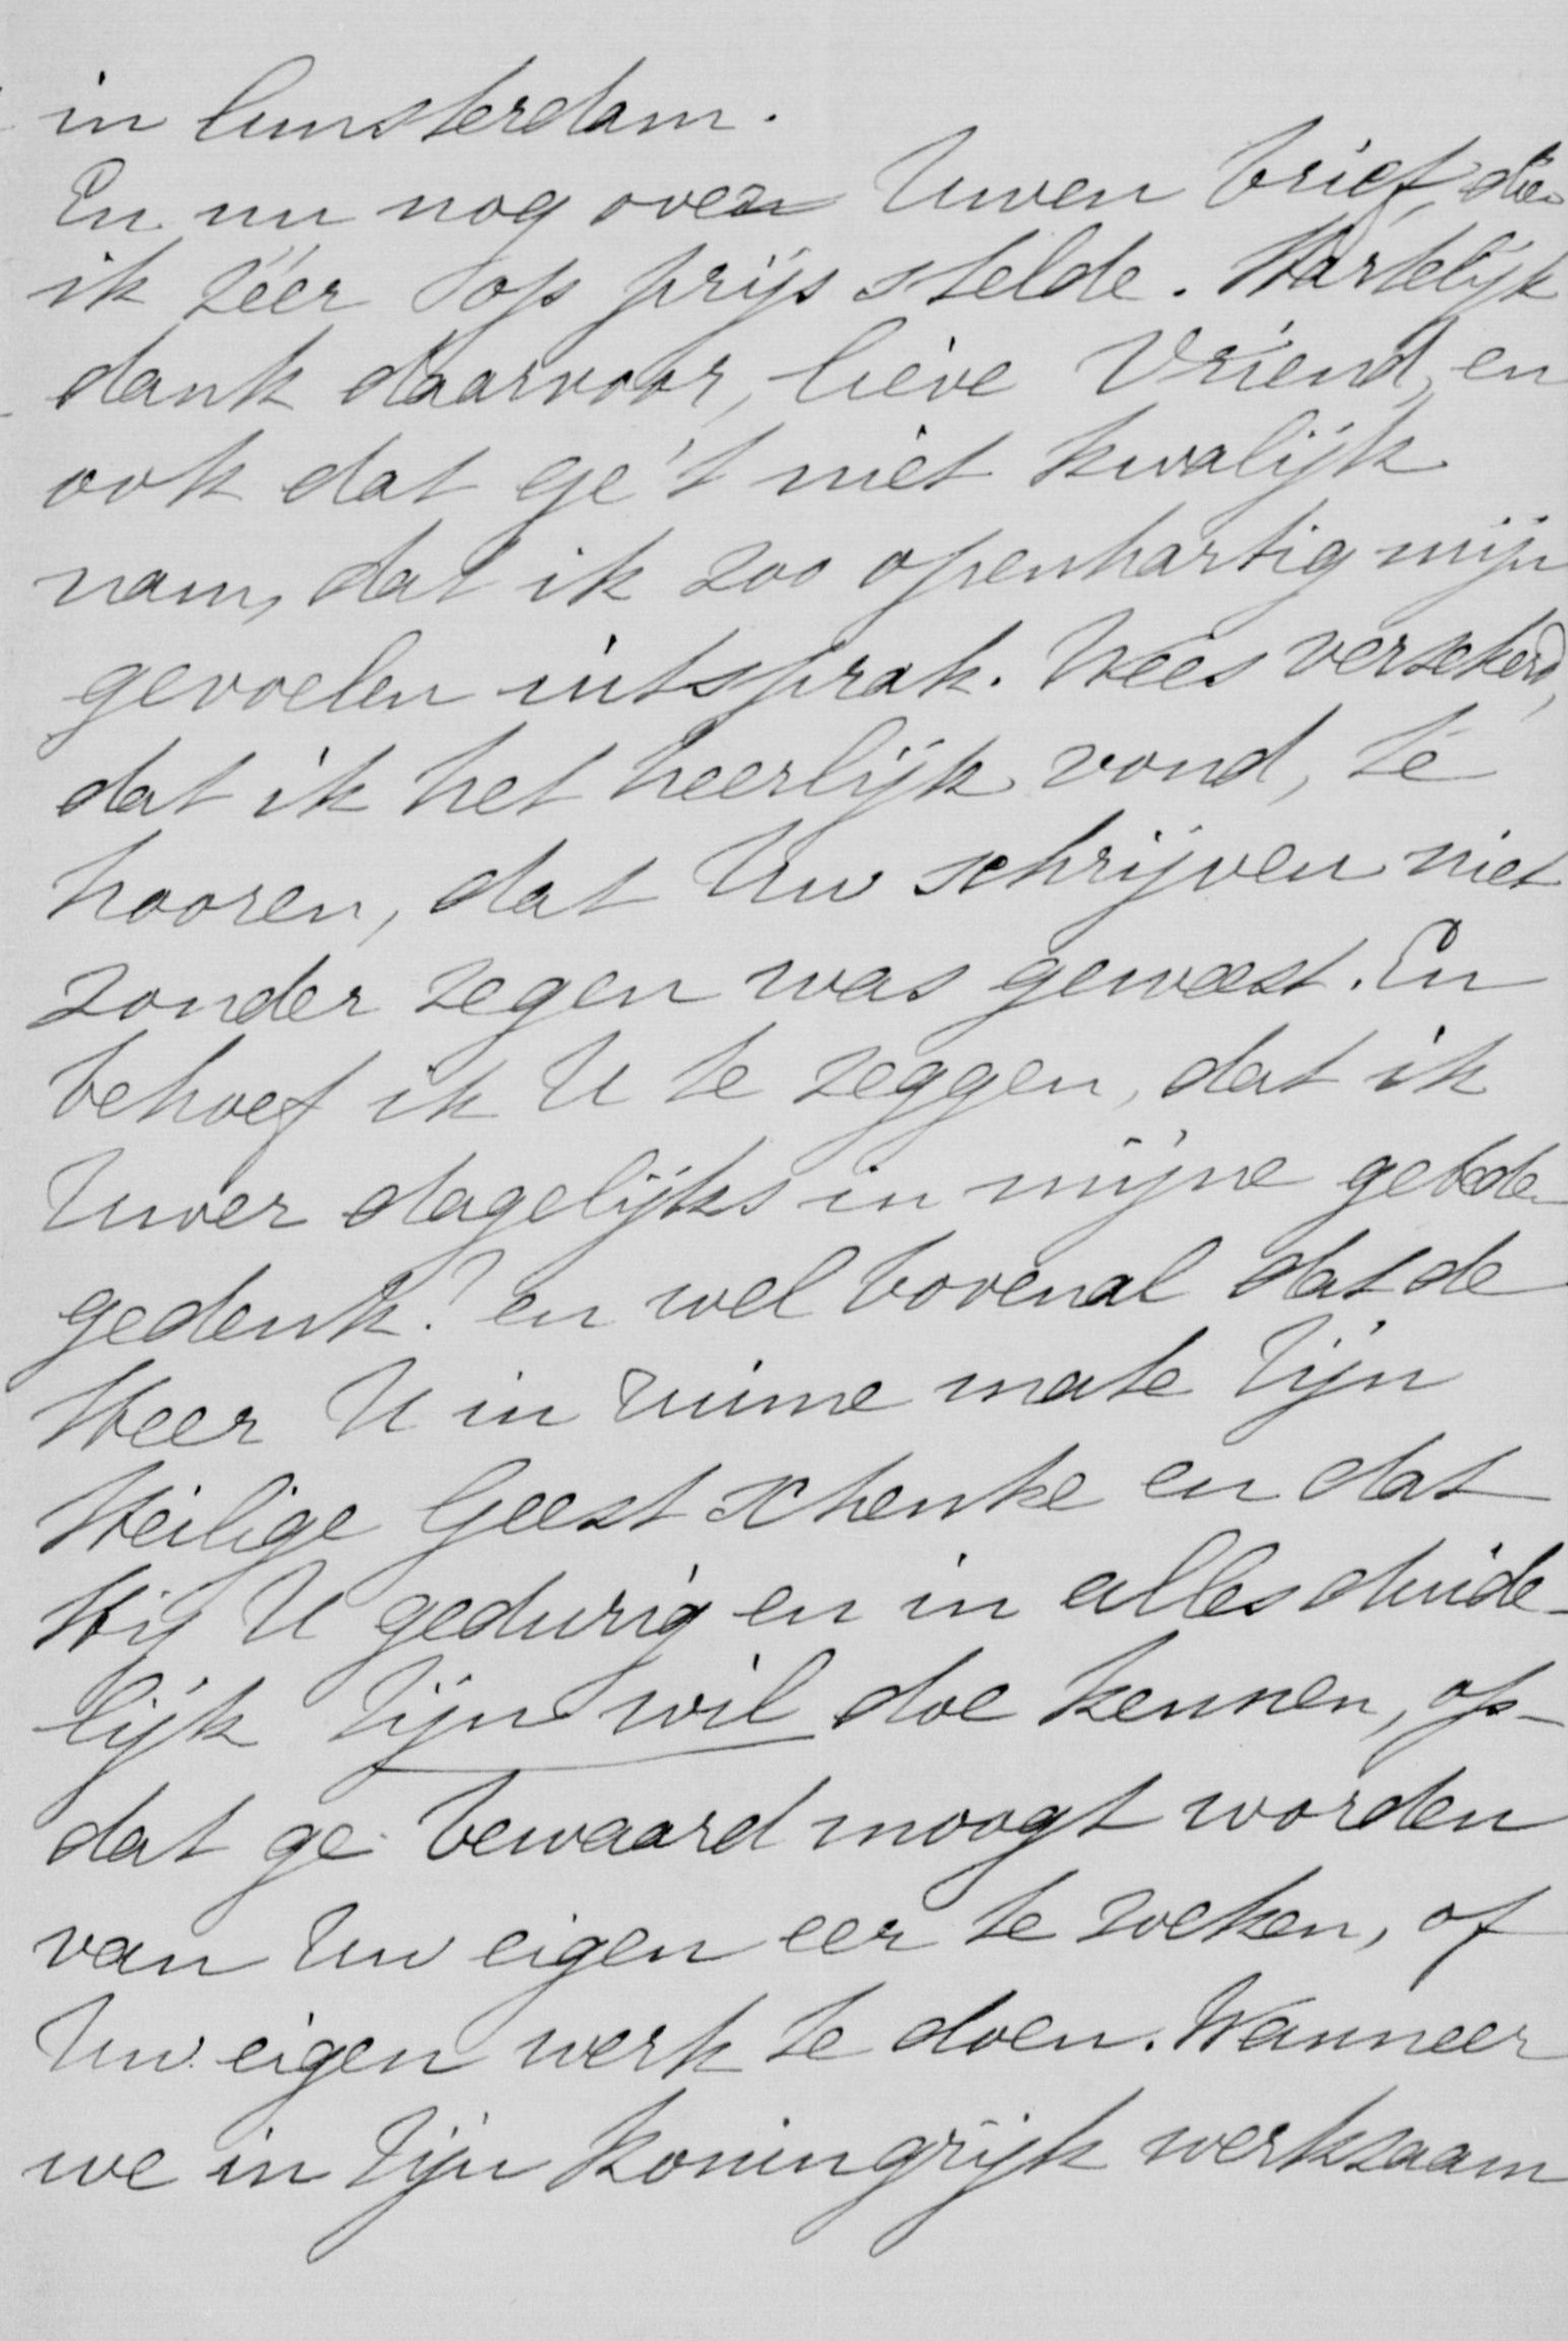 in Amsterdam.
En nu nog over Uwen brief, dien
ik zéér op prijs stelde. Hartelijk
dank daarvoor, lieve Vriend, en
ook dat ge 't niet kwalijk
nam, dat ik zoo openhartig mijn
gevoelen uitsprak. Wees verzekerd,
dat ik het heerlijk vond, te
hooren, dat Uw schrijven niet
zonder zegen was geweest. En
behoef ik U te zeggen, dat ik
Uwer dagelijks in mijne gebeden
gedenk? en wel bovenal dat de
Heer U in ruime mate Zijn
Heilige Geest schenke en dat
Hij U gedurig en in alles duide-
lijk Zijn wil doe kennen, op-
dat ge bewaard moogt worden
van Uw eigen eer te zoeken, of
Uw eigen werk te doen. Wanneer
we in Zijn Koningrijk werkzaam